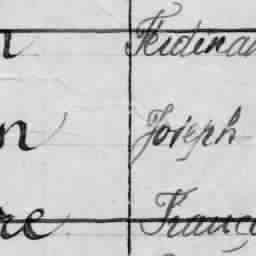 n Ferdinan
n Joseph
re Franç